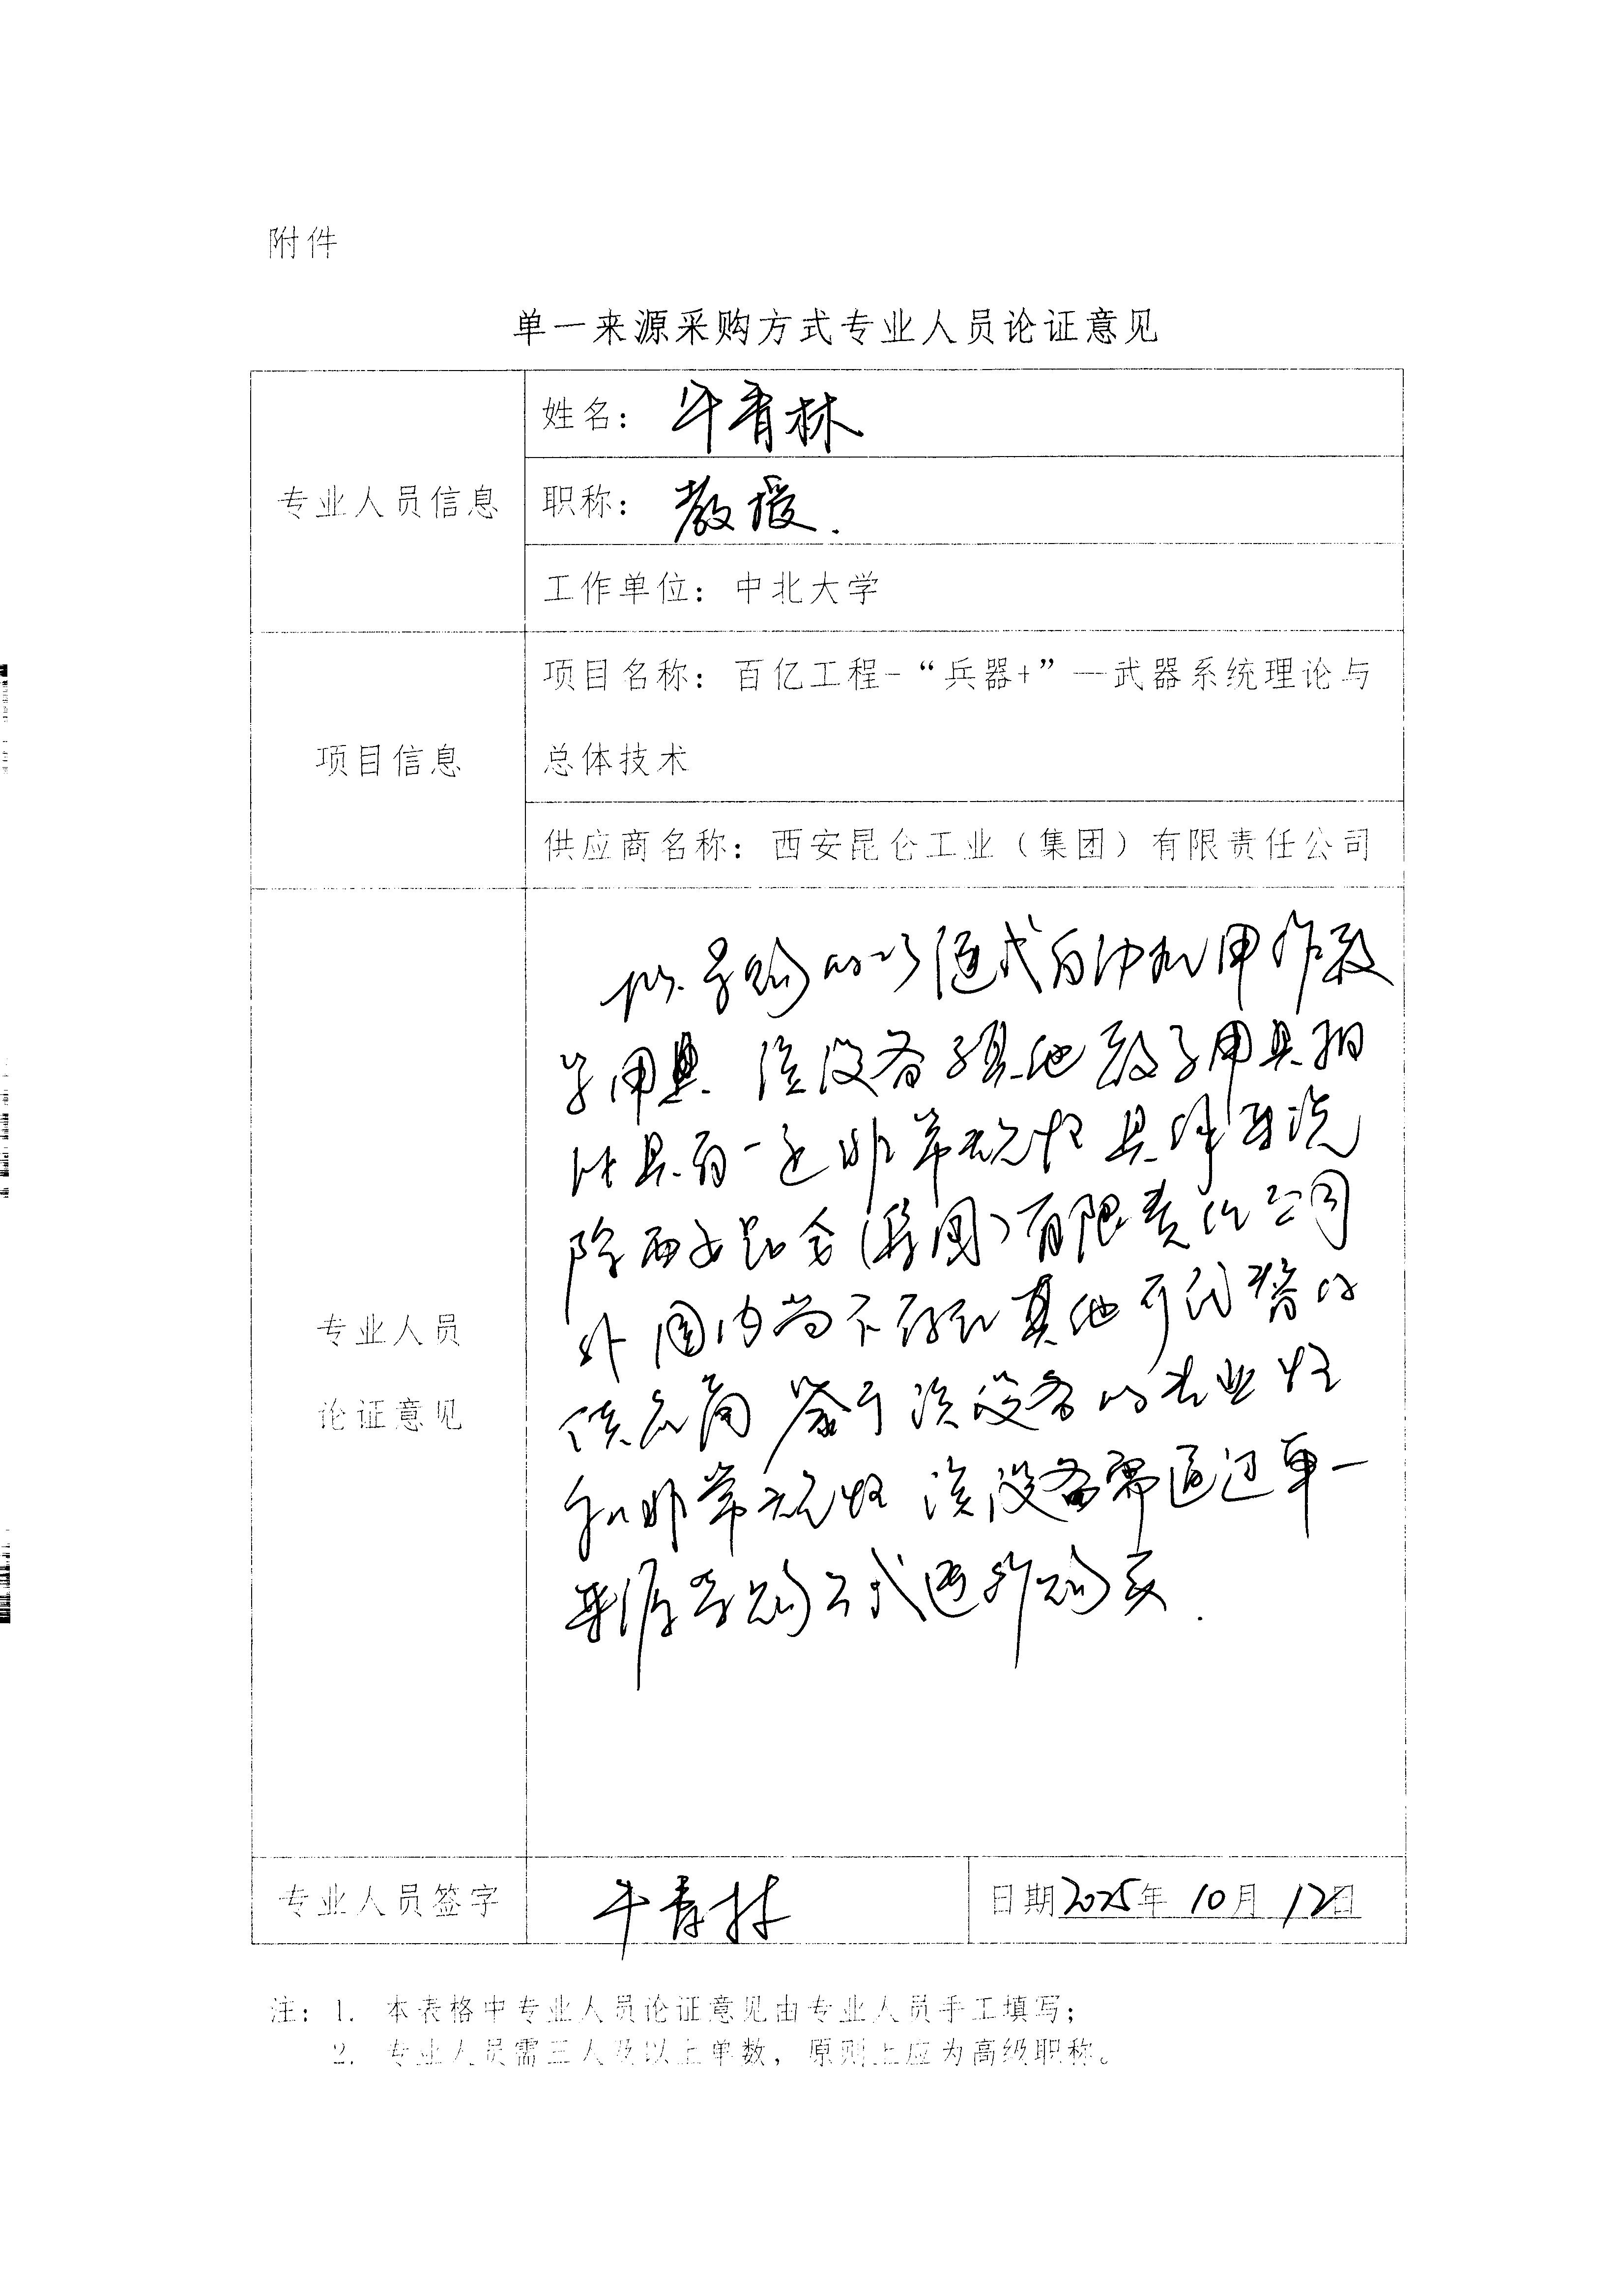 附件
单一来源采购方式专业人员论证意见
专业人员信息
姓名：牛青林
职称：教授.
工作单位：中北大学
项目信息
项目名称：百亿工程-“兵器+”—武器系统理论与
总体技术
供应商名称：西安昆仑工业（集团）有限责任公司
专业人员
论证意见
采购的 式自 用作教
学用具 该设备与其他教学用具相
比具有一定非常规性 具体情况
除西安昆仑(集团)有限责任公司
外国内尚不存在其他可代替的
供应商 鉴于该设备的专业性
和非常规性 该设备需通过单一
来源采购方式进行购买.
专业人员签字
牛青林
日期2025年10月12日
注：1. 本表格中专业人员论证意见由专业人员手工填写；
2. 专业人员需三人及以上单数，原则上应为高级职称。